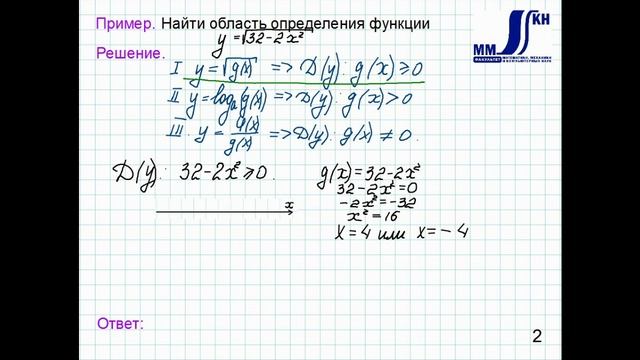 Пример. Найти область определения функции
y = √32 - 2x²
Решение.
I y = √g(x) => D(y): g(x) ≥ 0
II y = logₐ(g(x)) => D(y): g(x) > 0
III y = φ(x)/g(x) => D(y): g(x) ≠ 0.
D(y): 32 - 2x² ≥ 0.
x
g(x) = 32 - 2x²
32 - 2x² = 0
-2x² = -32
x² = 16
x = 4 или x = -4
Ответ:
2
ММ
КН
ФАКУЛЬТЕТ
МАТЕМАТИКИ, МЕХАНИКИ
И КОМПЬЮТЕРНЫХ НАУК